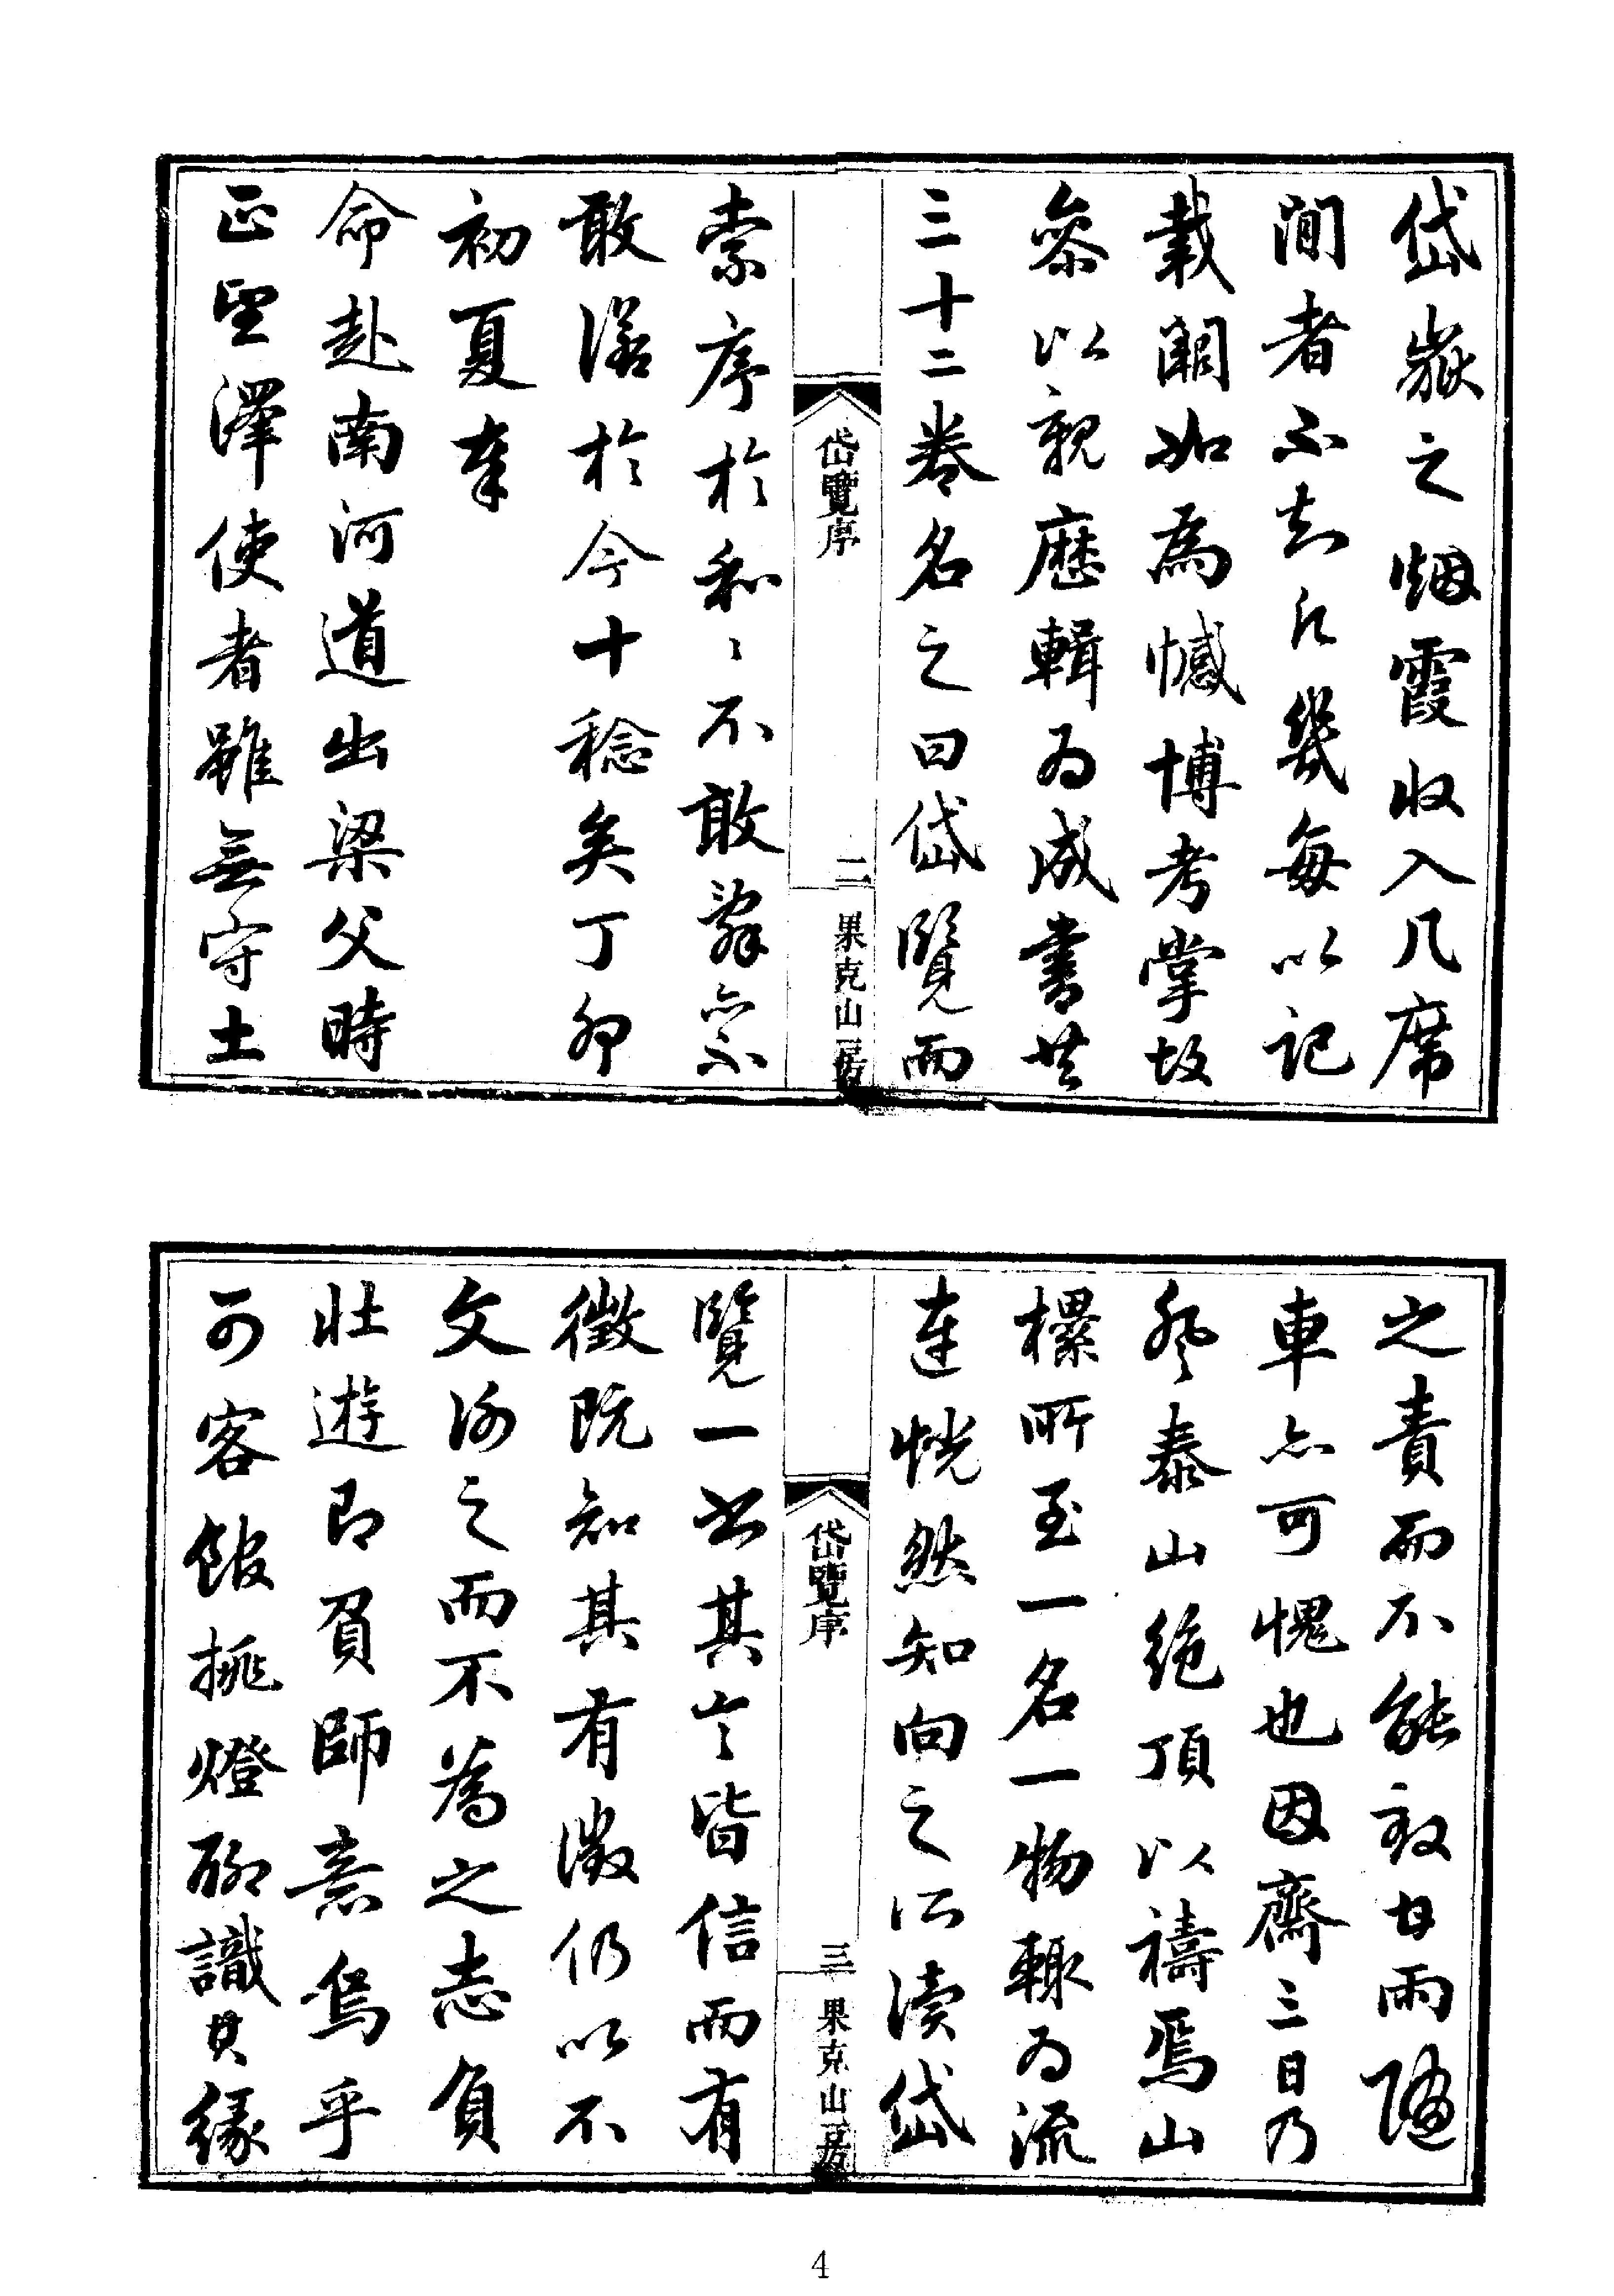 岱嶽之烟霞收入几席
間者不知凡幾每以記
載闕如爲憾博考掌故
參以親歷輯爲成書共
三十二卷名之曰岱覽而
岱覽序
二
果克山房
索序於和和不敢辭亦不
敢諾於今十稔矣丁卯
初夏奉
命赴南河道出梁父時
正望澤使者雖無守土
之責而不能致甘雨隨
車亦可愧也因齋三日乃
登泰山絶頂以禱焉山
樏所至一名一物輒爲流
連恍然知向之所讀岱
岱覽序
三
果克山房
覽一書其言皆信而有
徵既知其有徵仍以不
文謝之而不爲之志負
壯遊即負師意烏乎
可客館挑燈聊識其緣
4